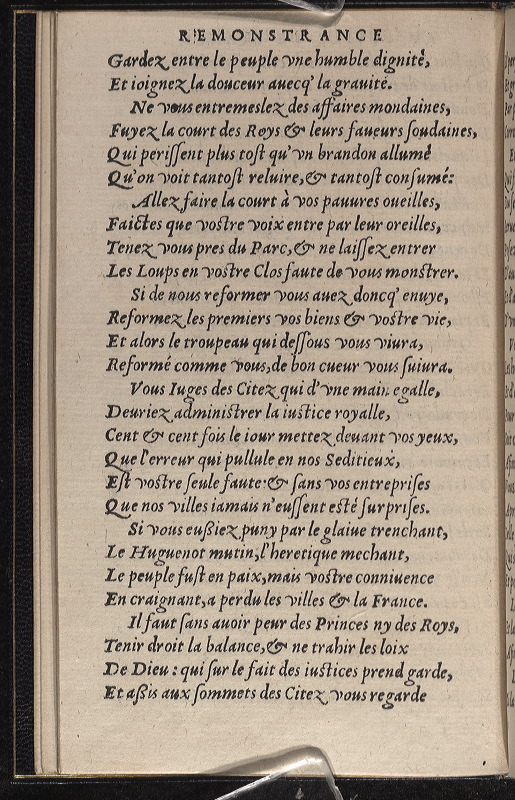 REMONSTRANCE
Gardez entre le peuple vne humble dignité,
Et ioignez la douceur auecq' la grauité.
Ne vous entremeslez des affaires mondaines,
Fuyez la court des Roys & leurs faueurs soudaines,
Qui perissent plus tost qu'vn brandon allumé
Qu'on voit tantost reluire, & tantost consumé:
Allez faire la court à vos pauures oueilles,
Faictes que vostre voix entre par leur oreilles,
Tenez vous pres du Parc, & ne laissez entrer
Les Loups en vostre Clos faute de vous monstrer.
Si de nous reformer vous auez doncq' enuye,
Reformez les premiers vos biens & vostre vie,
Et alors le troupeau qui dessous vous viura,
Reformé comme vous, de bon cueur vous suiura.
Vous Iuges des Citez qui d'vne main egalle,
Deuriez administrer la iustice royalle,
Cent & cent fois le iour mettez deuant vos yeux,
Que l'erreur qui pullule en nos Seditieux,
Est vostre seule faute: & sans vos entreprises
Que nos villes iamais n'eussent esté surprises.
Si vous eußiez puny par le glaiue trenchant,
Le Huguenot mutin, l'heretique mechant,
Le peuple fust en paix, mais vostre conniuence
En craignant, a perdu les villes & la France.
Il faut sans auoir peur des Princes ny des Roys,
Tenir droit la balance, & ne trahir les loix
De Dieu: qui sur le fait des iustices prend garde,
Et aßis aux sommets des Citez vous regarde